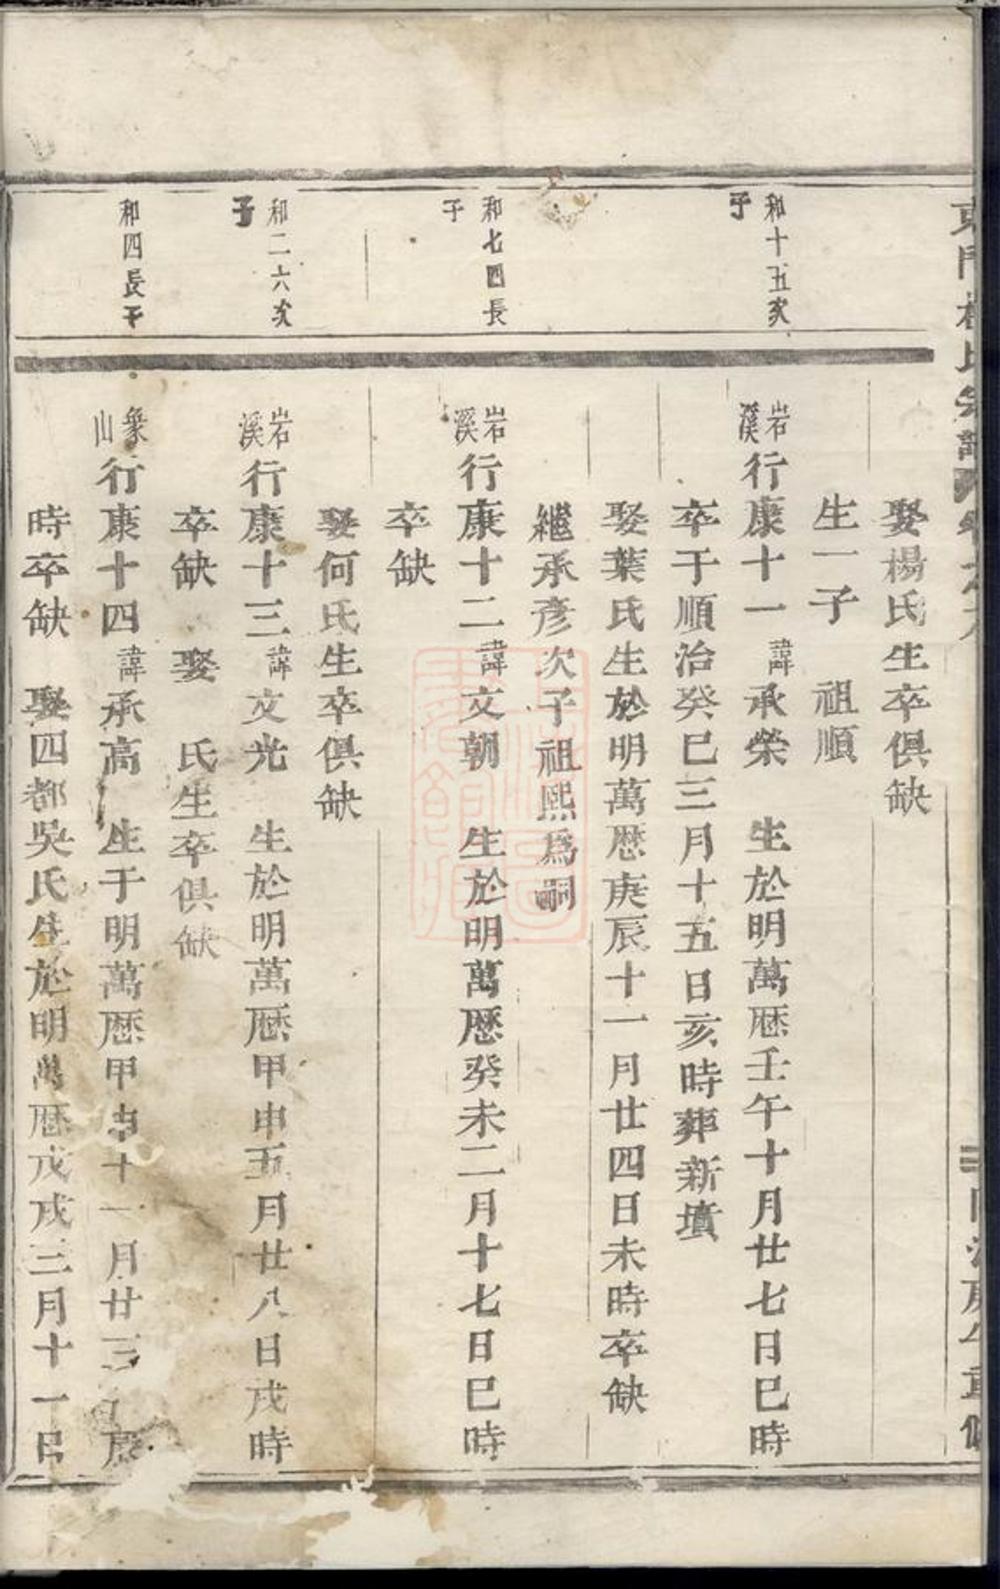 和十五次
子
和七四長
子
和二六次
子
和四長子
娶楊氏生卒俱缺
生一子 祖順
岩溪行康十一諱承榮 生於明萬厯壬午十月廿七日巳時
卒于順治癸巳三月十五日亥時葬新墳
娶葉氏生於明萬厯庚辰十一月廿四日未時卒缺
繼承彦次子祖熙爲嗣
岩溪行康十二諱文朝 生於明萬厯癸未二月十七日巳時
卒缺
娶何氏生卒俱缺
岩溪行康十三諱文光 生於明萬厯甲申五月廿八日戌時
卒缺 娶 氏生卒俱缺
象山行康十四諱承高 生于明萬厯甲申十一月廿三
時卒缺 娶四都吳氏生於明萬厯戊戌三月十一日